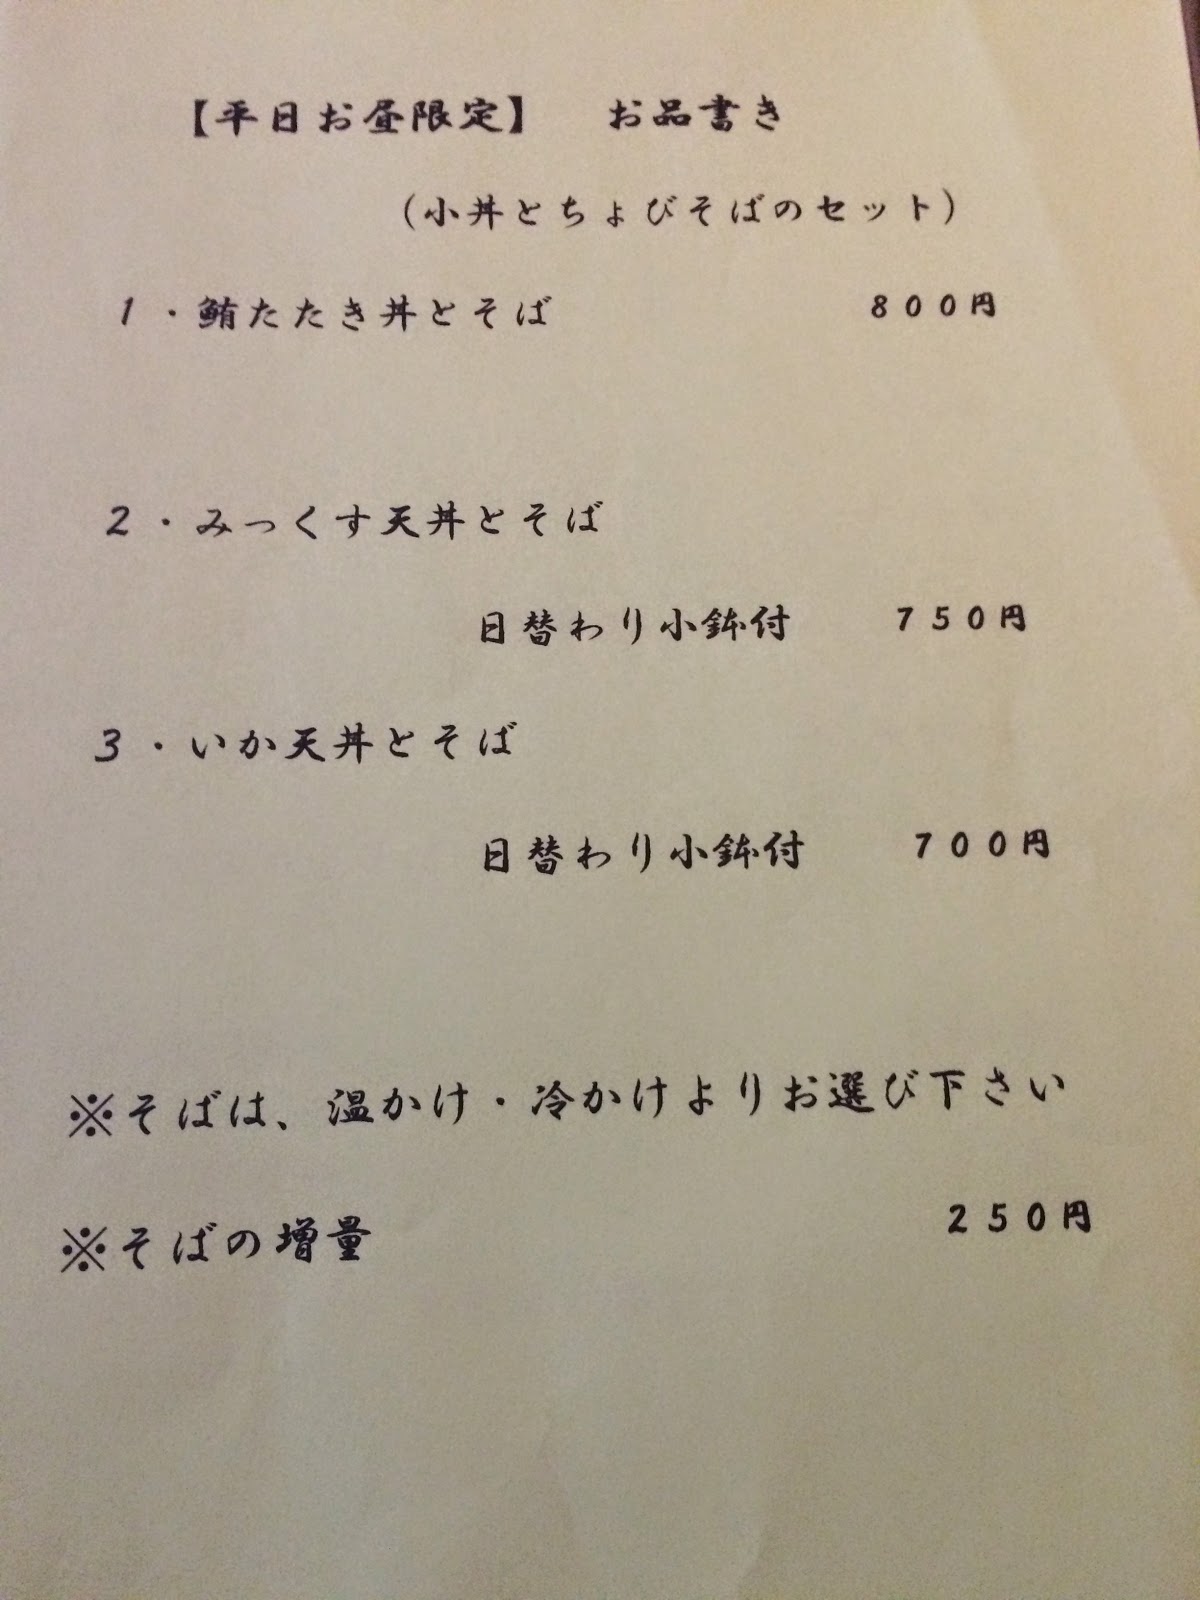 【平日お昼限定】　お品書き
（小丼とちょびそばのセット）
１・鮪たたき丼とそば　８００円
２・みっくす天丼とそば
日替わり小鉢付　７５０円
３・いか天丼とそば
日替わり小鉢付　７００円
※そばは、温かけ・冷かけよりお選び下さい
※そばの増量　２５０円